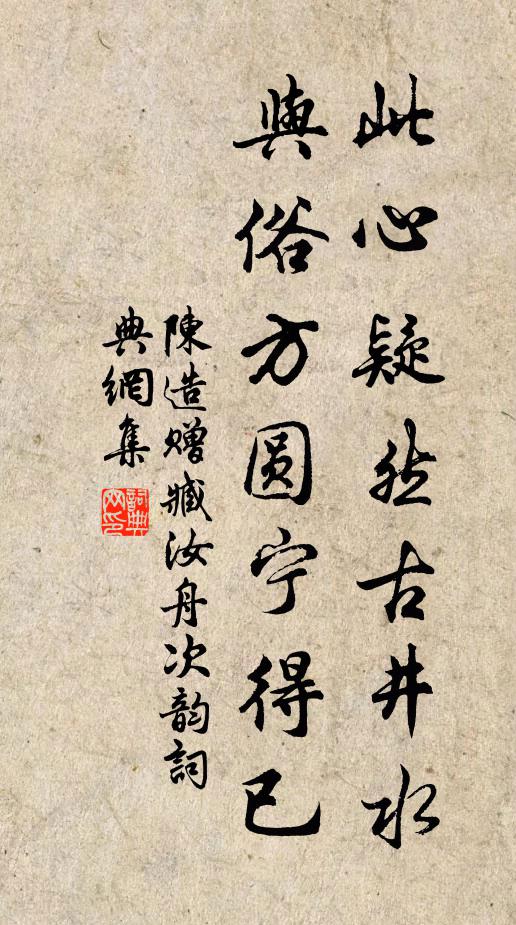 此心疑然古井水
與俗方圆宁得已
陳造赠臧汝舟次韵詞
典網集
詞典网印